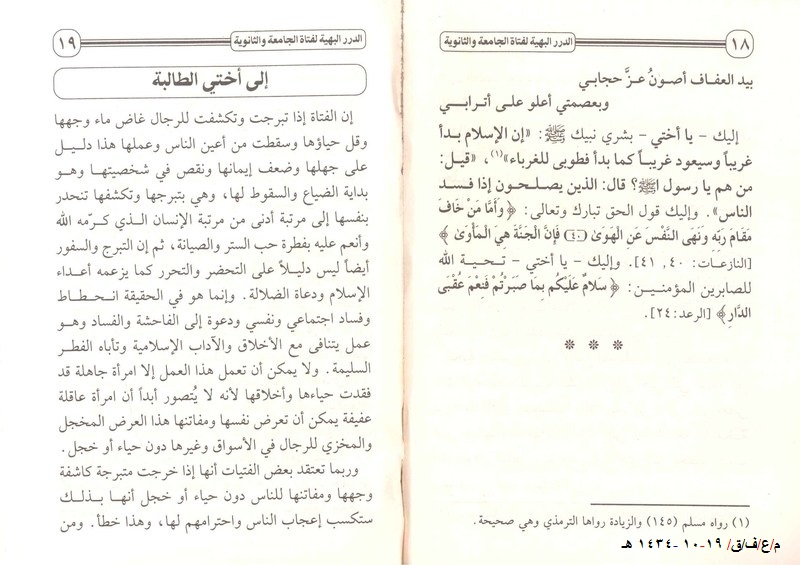 ١٨
الدرر البهية لفتاة الجامعة والثانوية
بيد العفاف أصونُ عزَّ حجابي
وبعصمتي أعلو على أترابي
إليك - يا أختي - بشرى نبيك ﷺ: «إن الإسلام بدأ
غريباً وسيعود غريباً كما بدأ فطوبى للغرباء»(١)، «قيل:
من هم يا رسول ﷺ؟ قال: الذين يصلحون إذا فسد
الناس». وإليك قول الحق تبارك وتعالى: ﴿وَأَمَّا مَنْ خَافَ
مَقَامَ رَبِّهِ وَنَهَى النَّفْسَ عَنِ الْهَوَىٰ (٤٠) فَإِنَّ الْجَنَّةَ هِيَ الْمَأْوَىٰ﴾
[النازعات: ٤٠، ٤١]. وإليك - يا أختي - تحية الله
للصابرين المؤمنين: ﴿سَلَامٌ عَلَيْكُم بِمَا صَبَرْتُمْ فَنِعْمَ عُقْبَى
الدَّارِ﴾ [الرعد: ٢٤].
* * *
(١) رواه مسلم (١٤٥) والزيادة رواها الترمذي وهي صحيحة.
م/ع/ف/ق/ ١٩-١٠-١٤٣٤ هـ
الدرر البهية لفتاة الجامعة والثانوية
١٩
إلى أختي الطالبة
إن الفتاة إذا تبرجت وتكشفت للرجال غاض ماء وجهها
وقل حياؤها وسقطت من أعين الناس وعملها هذا دليل
على جهلها وضعف إيمانها ونقص في شخصيتها وهو
بداية الضياع والسقوط لها، وهي بتبرجها وتكشفها تنحدر
بنفسها إلى مرتبة أدنى من مرتبة الإنسان الذي كرّمه الله
وأنعم عليه بفطرة حب الستر والصيانة، ثم إن التبرج والسفور
أيضاً ليس دليلاً على التحضر والتحرر كما يزعمه أعداء
الإسلام ودعاة الضلالة. وإنما هو في الحقيقة انحطاط
وفساد اجتماعي ونفسي ودعوة إلى الفاحشة والفساد وهو
عمل يتنافى مع الأخلاق والآداب الإسلامية وتأباه الفطر
السليمة. ولا يمكن أن تعمل هذا العمل إلا امرأة جاهلة قد
فقدت حياءها وأخلاقها لأنه لا يُتصور أبداً أن امرأة عاقلة
عفيفة يمكن أن تعرض نفسها ومفاتنها هذا العرض المخجل
والمخزي للرجال في الأسواق وغيرها دون حياء أو خجل.
وربما تعتقد بعض الفتيات أنها إذا خرجت متبرجة كاشفة
وجهها ومفاتنها للناس دون حياء أو خجل أنها بذلك
ستكسب إعجاب الناس واحترامهم لها، وهذا خطأ. ومن